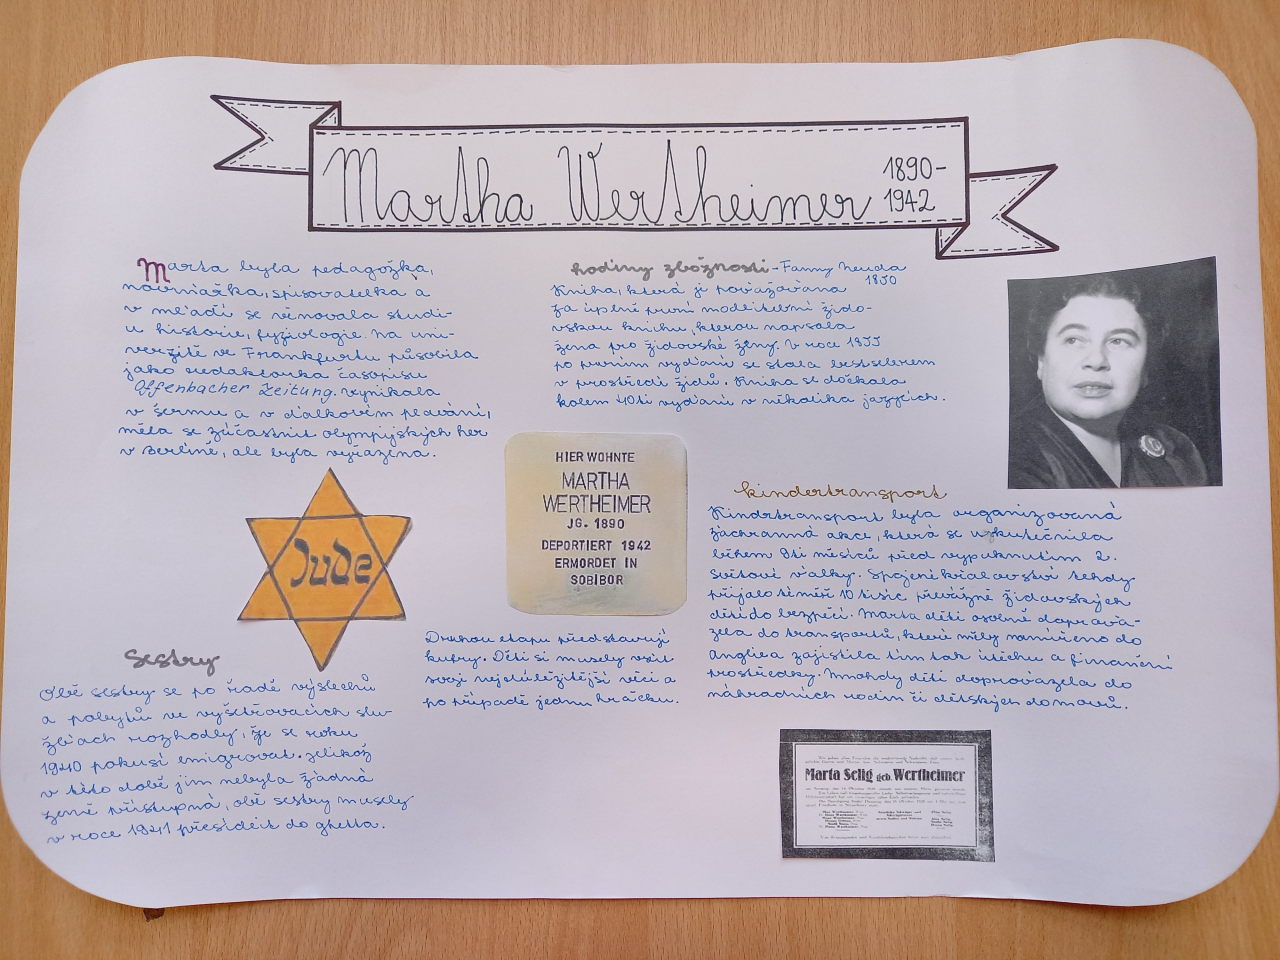 Martha Wertheimer 1890-
1942
Marta byla pedagožka,
novinářka, spisovatelka a
v mládí se věnovala studi-
u historie, fyziologie. Na uni-
verzitě ve Frankfurtu působila
jako redaktorka časopisu
Offenbacher Zeitung. Vynikala
v šermu a v dálkovém plavání,
měla se zúčastnit olympijských her
v Berlíně, ale byla vyřazena.
hodiny zbožnosti - Fanny Neuda
1850
Kniha, která je považována
za úplně první modlitební žido-
vskou knihu, kterou napsala
žena pro židovské ženy. V roce 1855
po prvním vydání se stala bestselerem
v prostředí židů. Kniha se dočkala
kolem 40ti vydání v několika jazycích.
Jude
HIER WOHNTE
MARTHA
WERTHEIMER
JG. 1890
DEPORTIERT 1942
ERMORDET IN
SOBIBOR
kindertransport
Kindrtransport byla organizovaná
záchranná akce, která se uskutečnila
během 9ti měsíců před vypuknutím 2.
světové války. Spojené království tehdy
přijalo téměř 10 tisíc převážně židovských
dětí do bezpečí. Marta děti osobně doprová-
zela do transportů, které měly namířeno do
Anglie a zajistila tím tak útěchu a finanční
prostředky. Mnohdy děti doprovázela do
náhradních rodin či dětských domovů.
Druhou etapu představují
kufry. Děti si musely vzít
svoji nejdůležitější věci a
po případě jednu hračku.
sestry
Obě sestry se po řadě výslechů
a pobytů ve vyšetřovacích slu-
žbách rozhodly, že se roku
1940 pokusí emigrovat. Jelikož
v této době jim nebyla žádná
země přístupná, obě sestry musely
v roce 1941 přesídlit do ghetta.
Marta Selig geb. Wertheimer